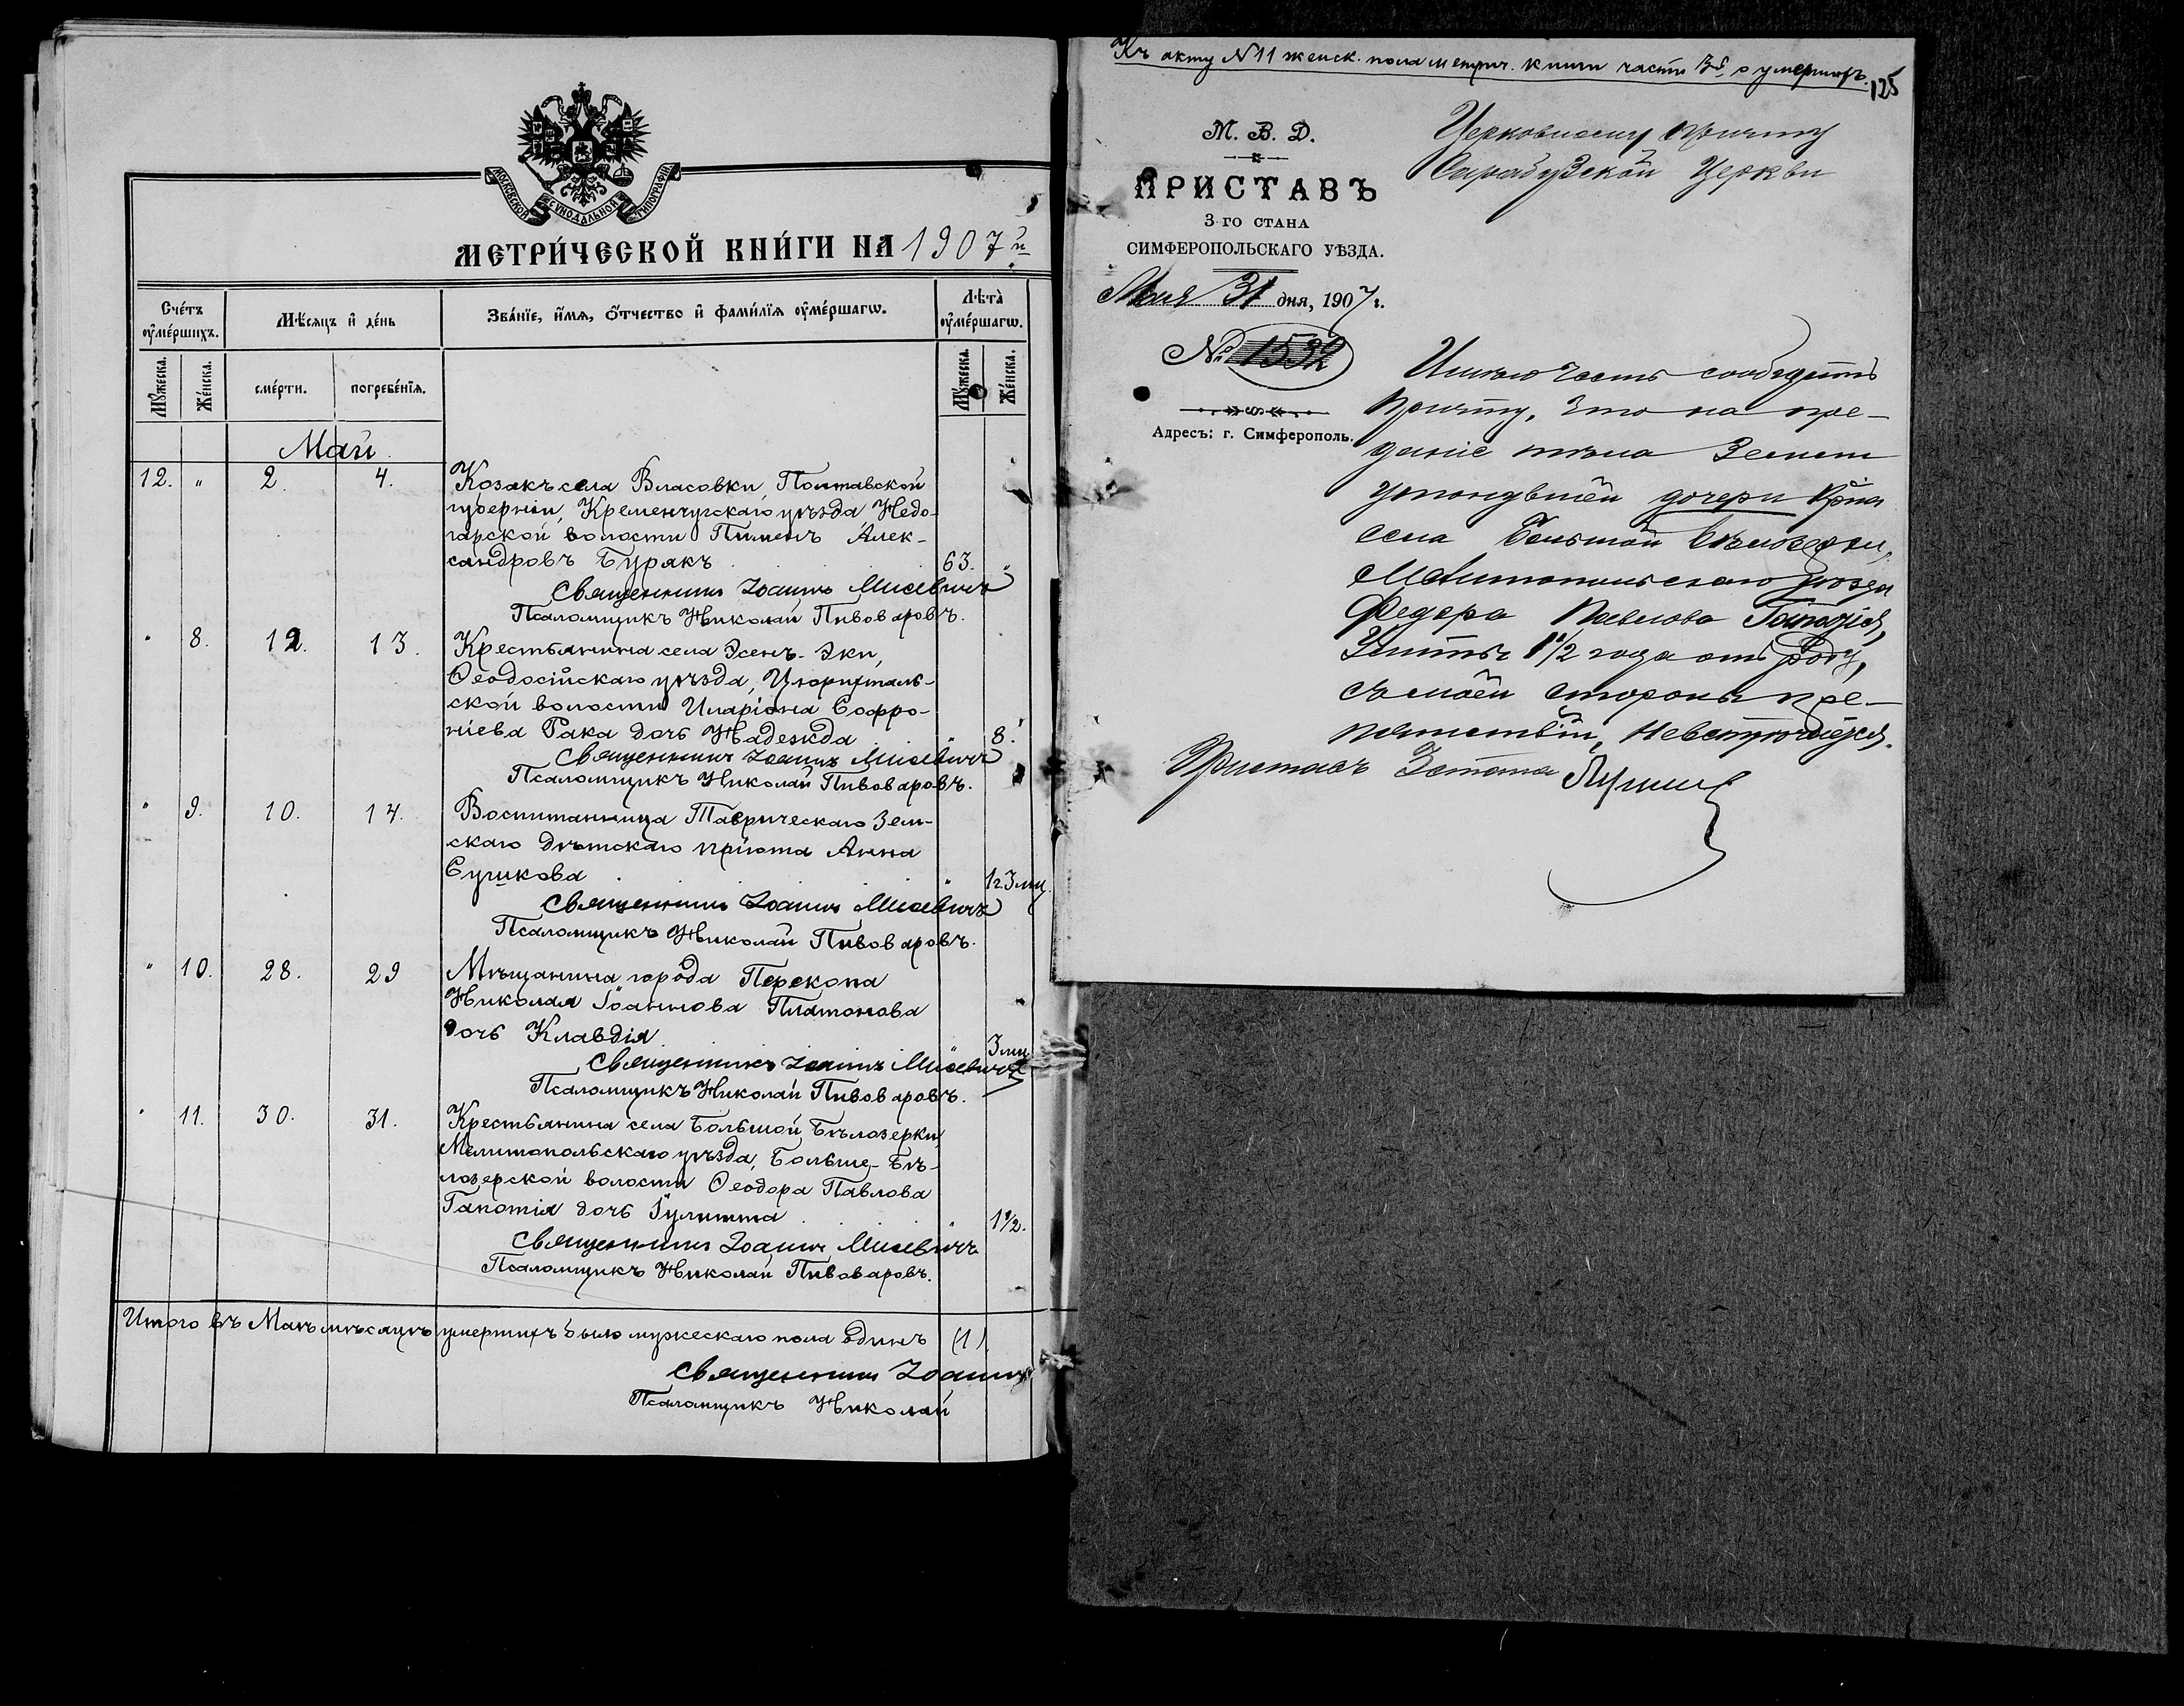 МОСКОВСКОЙ СѴНОДАЛЬНОЙ ТИПОГРАФІИ
МЕТРИ́ЧЕСКОЙ КНИ́ГИ НА 1907й
Сче́тъ ᲂу҆ме́ршихъ.
Мѣ́сяцъ и҆ де́нь
Зва́нїе, и҆́мѧ, ѻ҆́тчество и҆ фами́лїѧ ᲂу҆ме́ршагѡ.
Лѣта̀ ᲂу҆ме́ршагѡ.
Мꙋ́жеска.
Же́нска.
сме́рти.
погребе́нїѧ.
Мꙋ́жеска.
Же́нска.
Май.
12. " 2. 4. Козакъ села Власовки, Полтавской
губерніи, Кременчугскаго уѣзда Недо-
гарской волости Пименъ Алек-
сандровъ Буракъ 63. "
Священникъ Іоаннъ Мисевичъ
Псаломщикъ Николай Пивоваровъ.
" 8. 12. 13. Крестьянина села Эсенъ-Эки,
Ѳеодосійскаго уѣзда, Цюрихталь-
ской волости Иларіона Софро-
ніева Рака дочь Надежда " 8.
Священникъ Іоаннъ Мисевичъ
Псаломщикъ Николай Пивоваровъ.
" 9. 10. 14. Воспитанница Таврическаго Зем-
скаго дѣтскаго пріюта Анна
Сушкова " 1г.3мц.
Священникъ Іоаннъ Мисевичъ
Псаломщикъ Николай Пивоваровъ.
" 10. 28. 29 Мѣщанина города Перекопа
Николая Іоаннова Платонова
дочь Клавдія. " 3мц.
Священникъ Іоаннъ Мисевичъ
Псаломщикъ Николай Пивоваровъ.
" 11. 30. 31. Крестьянина села Большой Бѣлозерки,
Мелитопольскаго уѣзда, Больше-Бѣ-
лозерской волости Ѳеодора Павлова
Гапотія дочь Іулитта " 1½.
Священникъ Іоаннъ Мисевичъ
Псаломщикъ Николай Пивоваровъ.
Итого въ Маѣ мѣсяцѣ умершихъ было мужескаго пола одинъ (1)
Священникъ Іоаннъ
Псаломщикъ Николай
Къ акту №11 женск. пола метрич. книги части 3й, о умершихъ.
125
М. В. Д.
ПРИСТАВЪ
3-го СТАНА
СИМФЕРОПОЛЬСКАГО УѢЗДА.
Мая 31 дня, 1907 г.
№ 1532
Адресъ: г. Симферополь.
Церковному Причту
Сарабузской Церкви
Имѣю честь сообщить
Причту, что на пре-
даніе тѣла Земли
дочери Крна
села Большой Бѣлозерки,
Мелитопольскаго уѣзда
Федора Павлова Гапотія,
1½ года отъ роду,
съ моей стороны пре-
пятствій, невстрѣчается.
Приставъ 3 стана